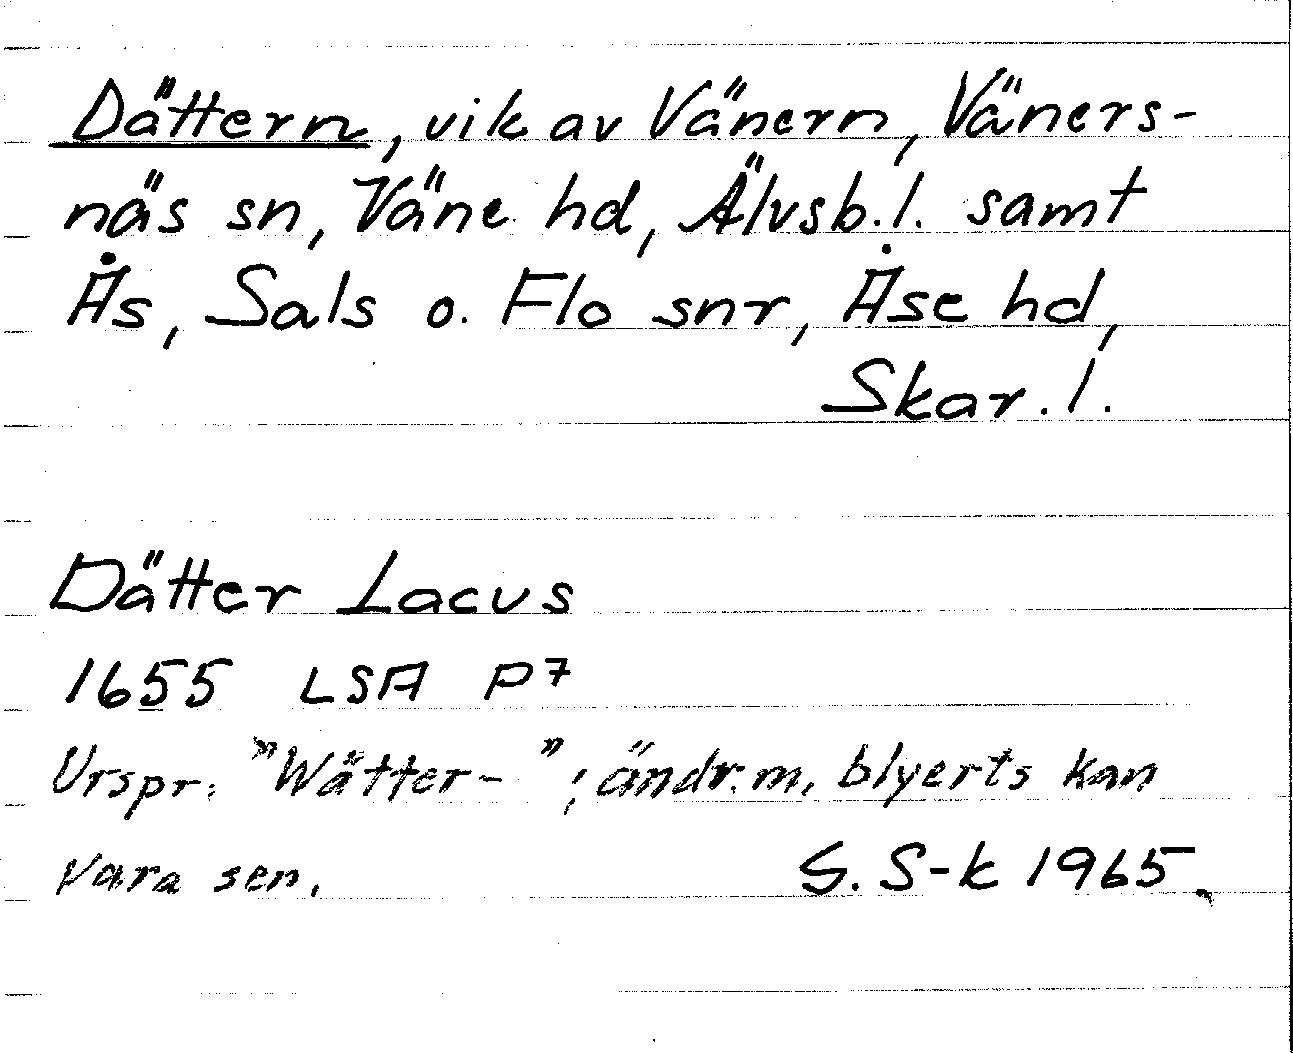 Dättern, vik av Vänern, Väners-
näs sn, Väne hd, Älvsb. l. samt
Ås, Sals o. Flo snr, Åse hd,
Skar. l.
Dätter Lacus
1655 LSA P7
Urspr. "Wätter-"; ändr. m. blyerts kan
vara sen.
G. S-k 1965.